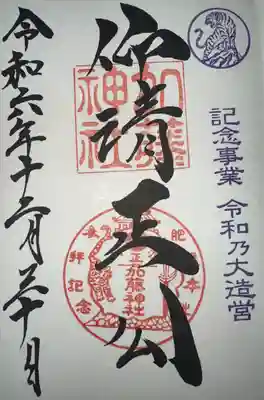 記念事業 令和乃大造営
仰清正公
加藤神社
肥後本社
加藤神社
参拝記念
令和六年十二月三十日